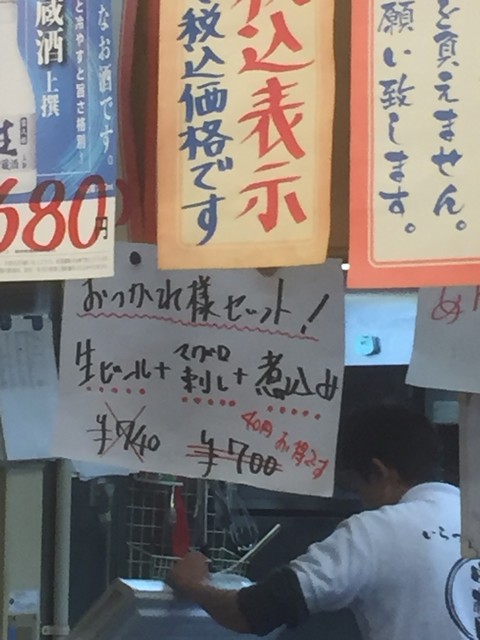 なお酒です。
と冷やすと旨さ格別!
蔵酒 上撰
生
680円
税込表示
税込価格です
を負えません。
願い致します。
おつかれ様セット!
生ビール+マグロ刺し+煮込め
¥740
¥700
40円お得です
いらっ